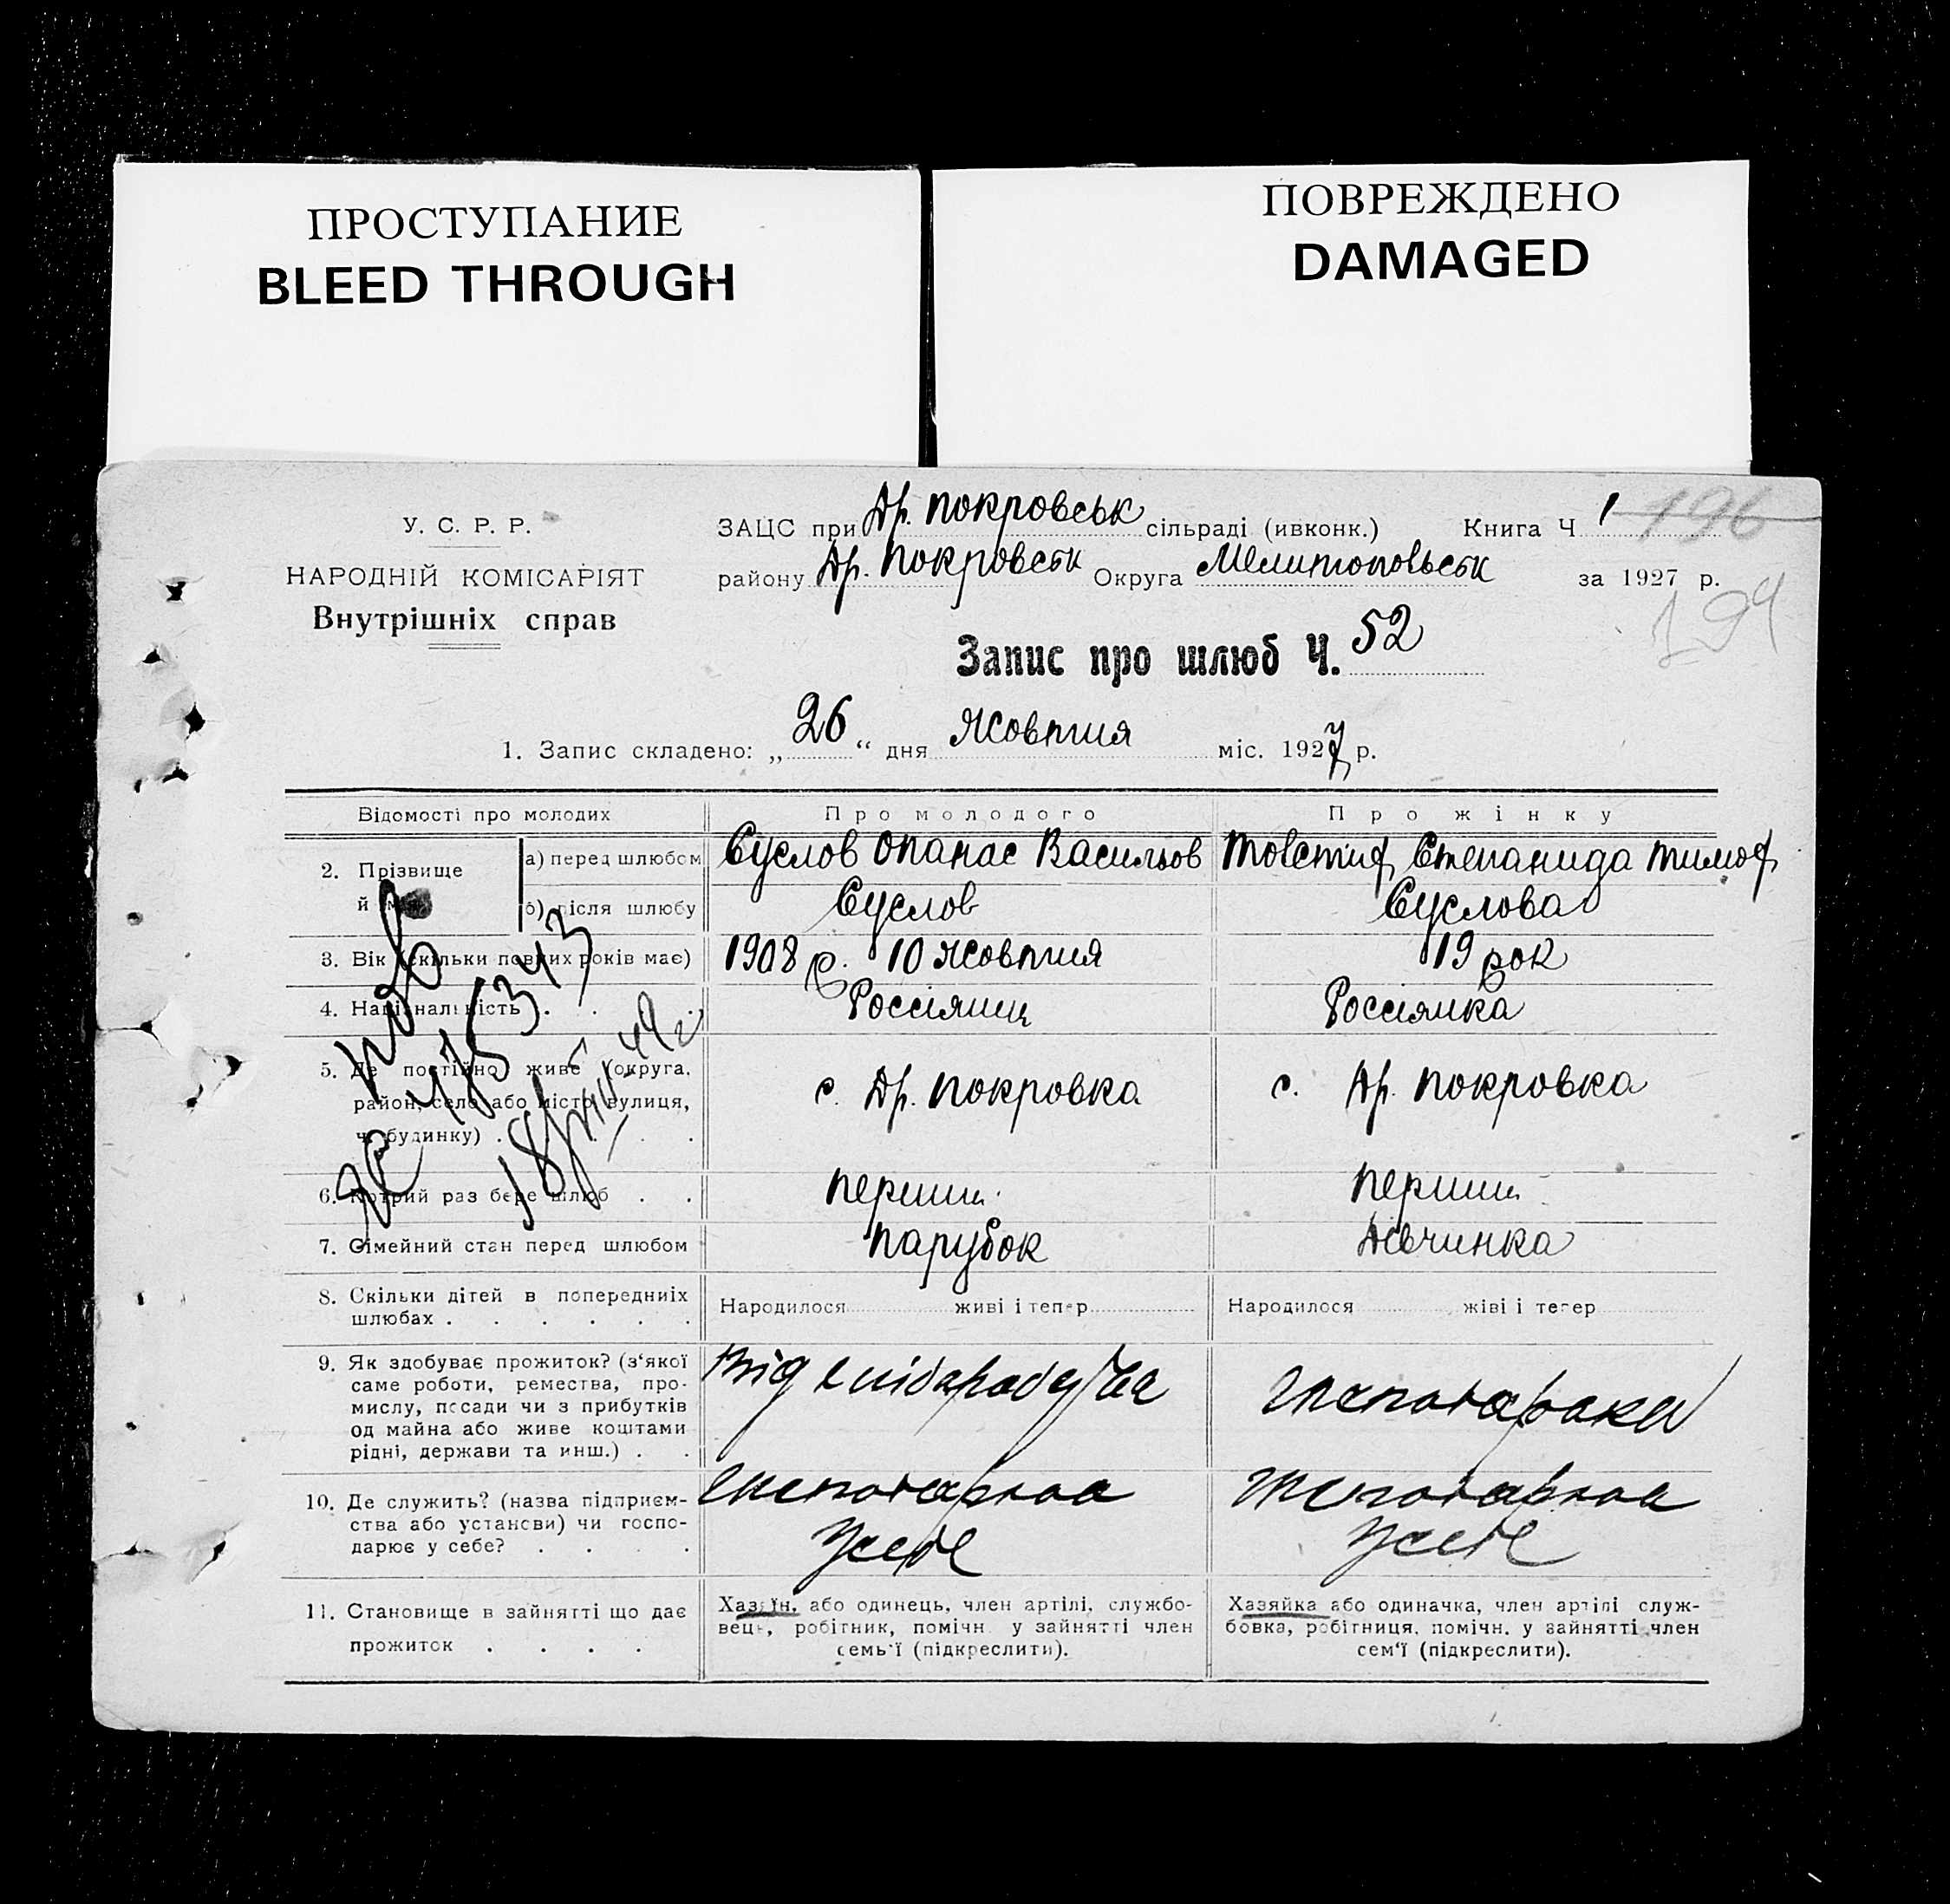 ПРОСТУПАНИЕ
BLEED THROUGH
ПОВРЕЖДЕНО
DAMAGED
У. С. Р. Р.
НАРОДНІЙ КОМІСАРІЯТ
Внутрішніх справ
ЗАЦС при Др. Покровськ сільраді (ивконк.) Книга Ч 1 196
району Др. Покровськ Округа Мелитопольськ за 1927 р.
194
Запис про шлюб Ч. 52
1. Запис складено: „26“ дня Жовтня міс. 1927 р.
Відомості про молодих Про молодого Про жінку
2. Прізвище й імя а) перед шлюбом Суслов Опанас Васильов Товстиф Степанида Тимоф
б) після шлюбу Суслов Суслова
3. Вік (скільки повних років має) 1908 р. 10 Жовтня 19 рок
4. Національність . . . Россіяниц Россіянка
5. Де постійно живе (округа,
район, село або місто, вулиця, с. Др. Покровка с. Др. Покровка
ч. будинку) . . . .
6. Котрий раз бере шлюб . . перший перший
7. Сімейний стан перед шлюбом Парубок Дівчинка
8. Скільки дітей в попередніх
шлюбах . . . . . . Народилося живі і тепер Народилося жіві і тепер
9. Як здобуває прожиток? (з‘якої
саме роботи, ремества, про-
мислу, посади чи з прибутків
од майна або живе коштами
рідні, держави та инш.) . .
Від
10. Де служить? (назва підприєм-
ства або установи) чи госпо-
дарює у себе? . . . .
у себе у себе
11. Становище в зайнятті що дає
прожиток . . . .
Хазяїн, або одинець, член артілі, службо-
вець, робітник, помічн. у зайнятті член
семь‘ї (підкреслити).
Хазяйка або одиначка, член артілі служ-
бовка, робітниця, помічн. у зайнятті член
сем‘ї (підкреслити).